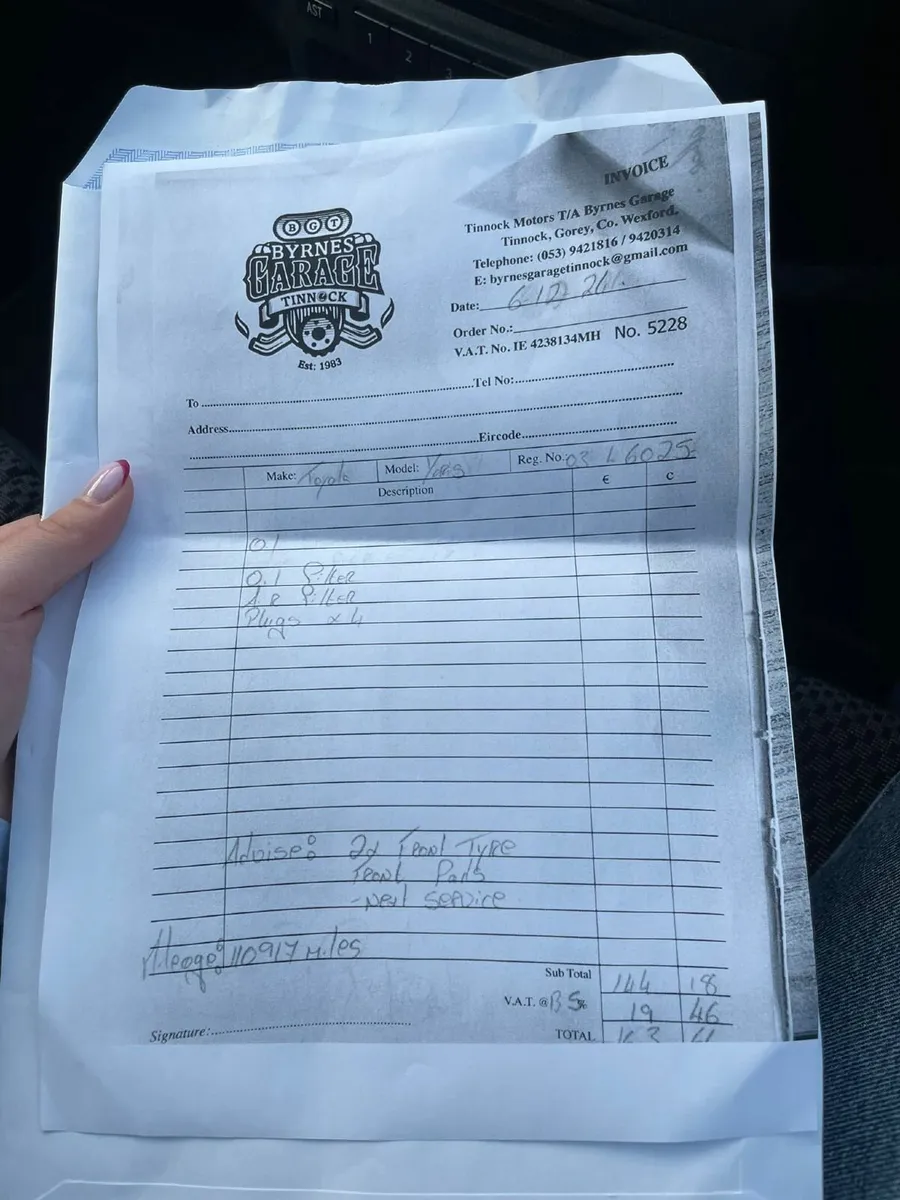 AST
1
2
3
INVOICE
Tinnock Motors T/A Byrnes Garage
Tinnock, Gorey, Co. Wexford.
Telephone: (053) 9421816 / 9420314
E: byrnesgaragetinnock@gmail.com
BGT
BYRNES
GARAGE
TINNOCK
Est: 1983
Date:
Order No.:
V.A.T. No. IE 4238134MH No. 5228
To Tel No:
Address
Eircode
Make: Toyota Model: Yaris Reg. No. 03 L 6025
Description € c
O.l
O.l Filter
Filter
Plugs x 4
Advise: 2x Front Tyre
Front Pads
-next service
Mileage: 110917 Miles
Sub Total 144 18
V.A.T. @ 13 5% 19 46
Signature: TOTAL 163